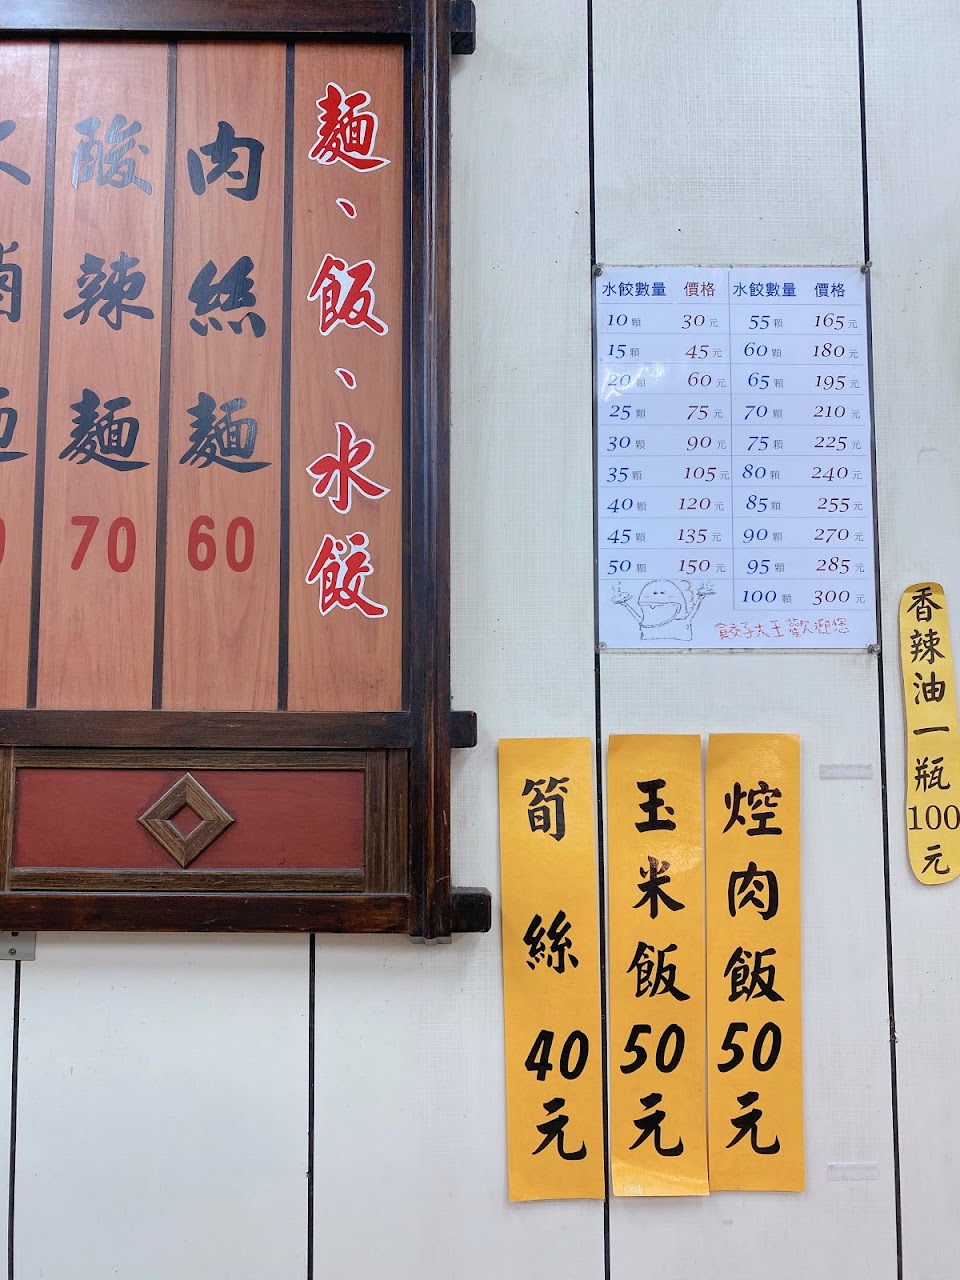 麵、飯、水餃
肉絲麵 60
酸辣麵 70
水餃數量 價格 水餃數量 價格
10顆 30元 55顆 165元
15顆 45元 60顆 180元
20顆 60元 65顆 195元
25顆 75元 70顆 210元
30顆 90元 75顆 225元
35顆 105元 80顆 240元
40顆 120元 85顆 255元
45顆 135元 90顆 270元
50顆 150元 95顆 285元
100顆 300元
餃子大王歡迎您
香辣油一瓶100元
焢肉飯50元
玉米飯50元
筍絲40元